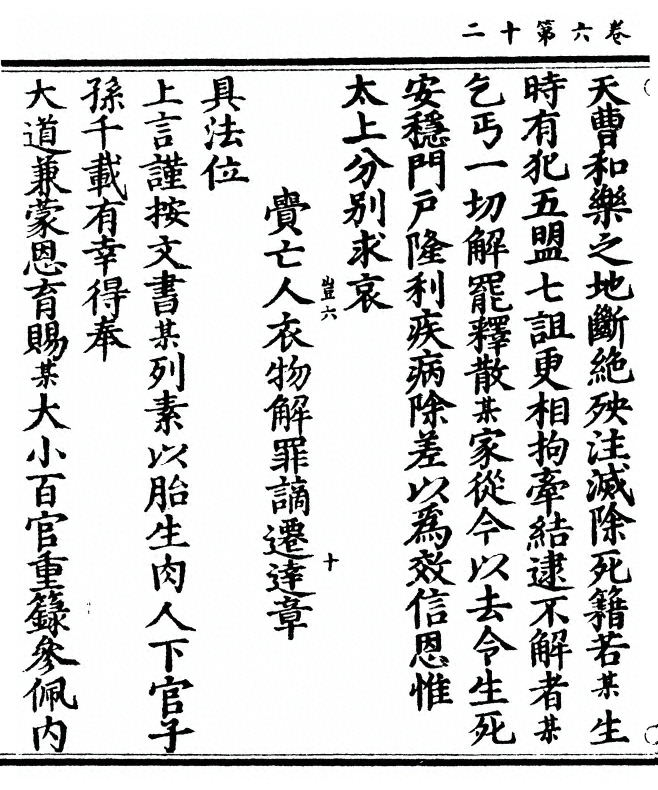 卷六第十二
天曹和樂之地斷絶殃注滅除死籍若某生
時有犯五盟七詛更相拘牽結逮不解者某
乞丐一切解罷釋散某家從今以去令生死
安穩門戶隆利疾病除差以爲效信恩惟
太上分別求哀
賷亡人衣物解罪謫遷達章
豈六
十
具法位
上言謹按文書某列素以胎生肉人下官子
孫千載有幸得奉
大道兼蒙恩育賜某大小百官重籙參佩内